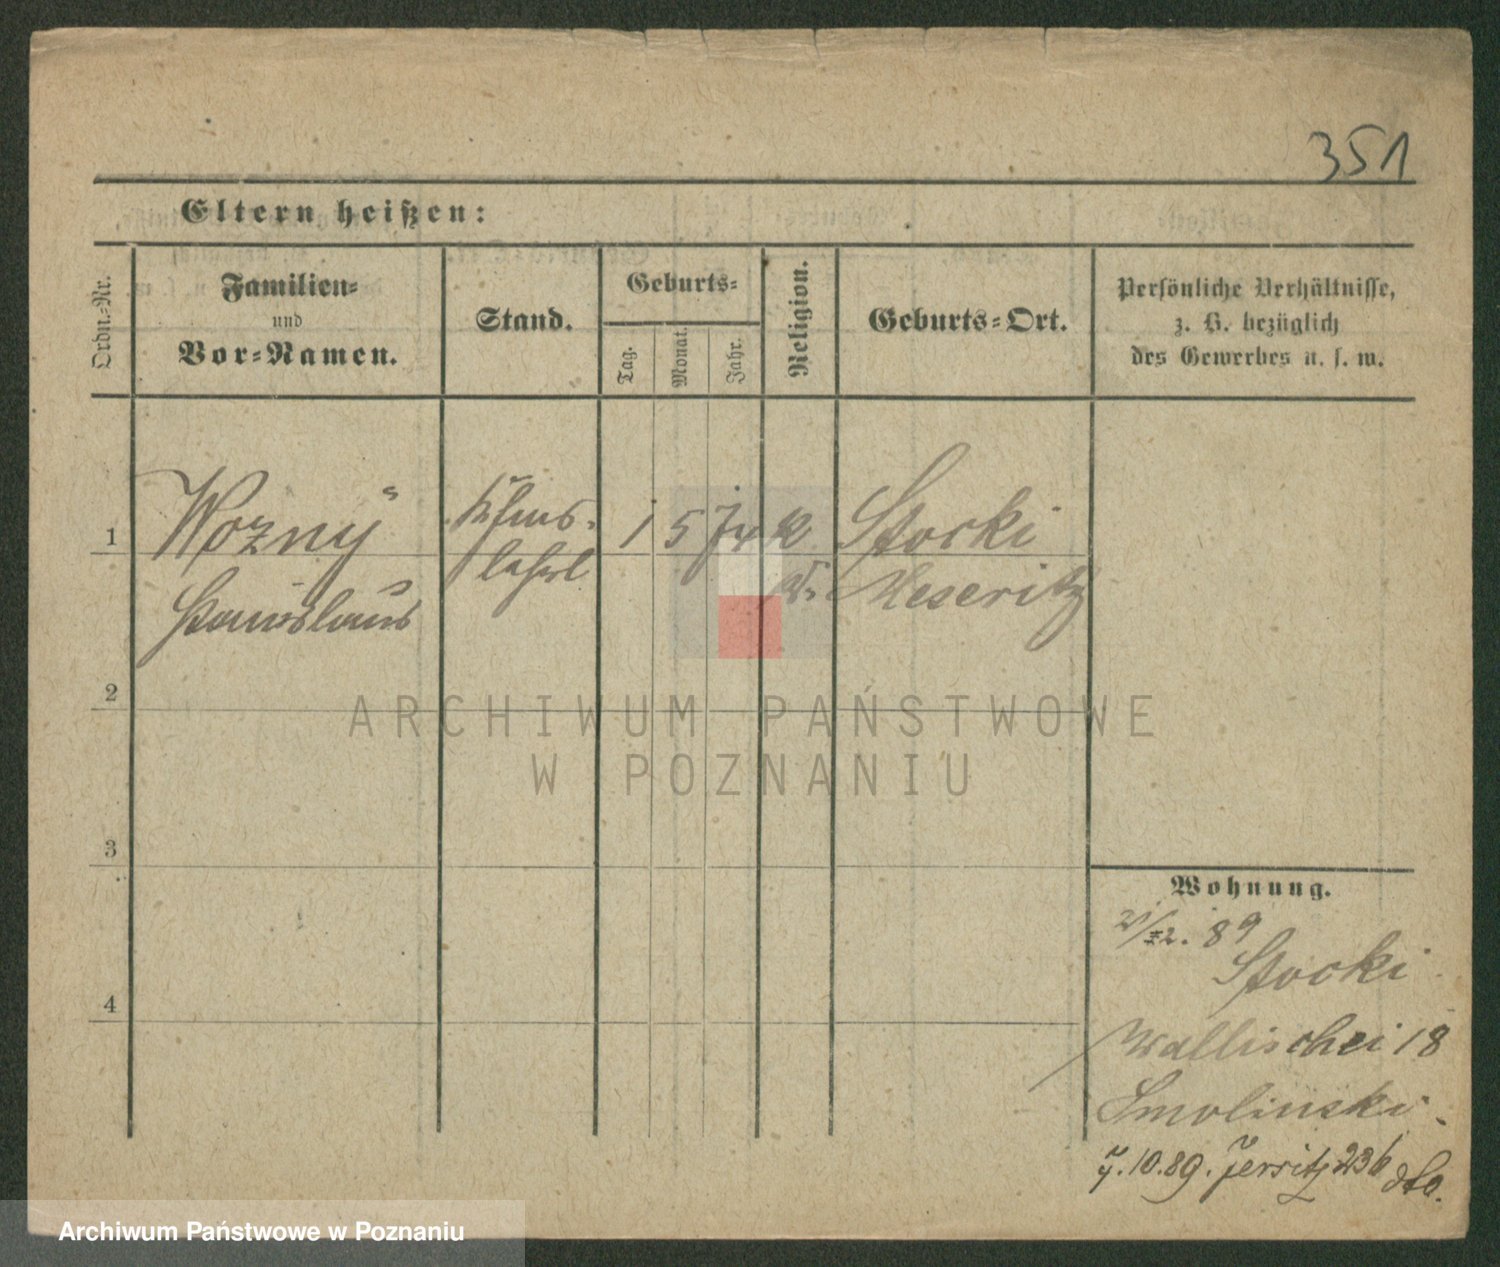 351
Eltern heißen:
Ordn.-Nr.
Familien-
und
Vor-Namen.
Stand.
Geburts-
Tag.
Monat.
Jahr.
Religion.
Geburts-Ort.
Persönliche Verhältnisse,
z. B. bezüglich
des Gewerbes u. s. w.
1
Wozny
Stanislaus
1 5 74
Storki
Meseritz
2
3
4
Wohnung.
89
Storki
Wallischei 18
Smolinski
7.10.89. Jersitz 236
ARCHIWUM PAŃSTWOWE
W POZNANIU
Archiwum Państwowe w Poznaniu